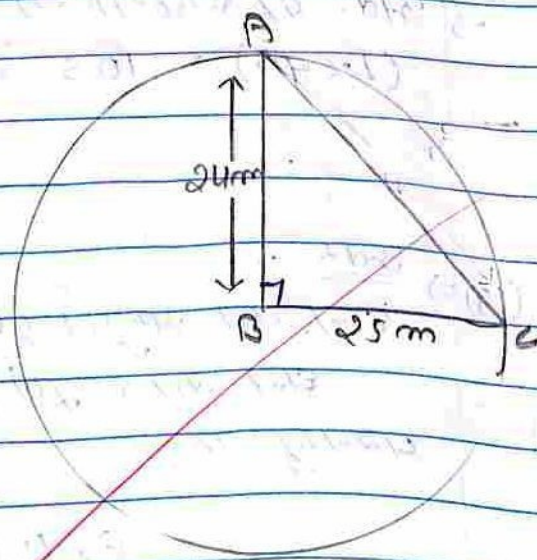 A
24m
B
25m
C